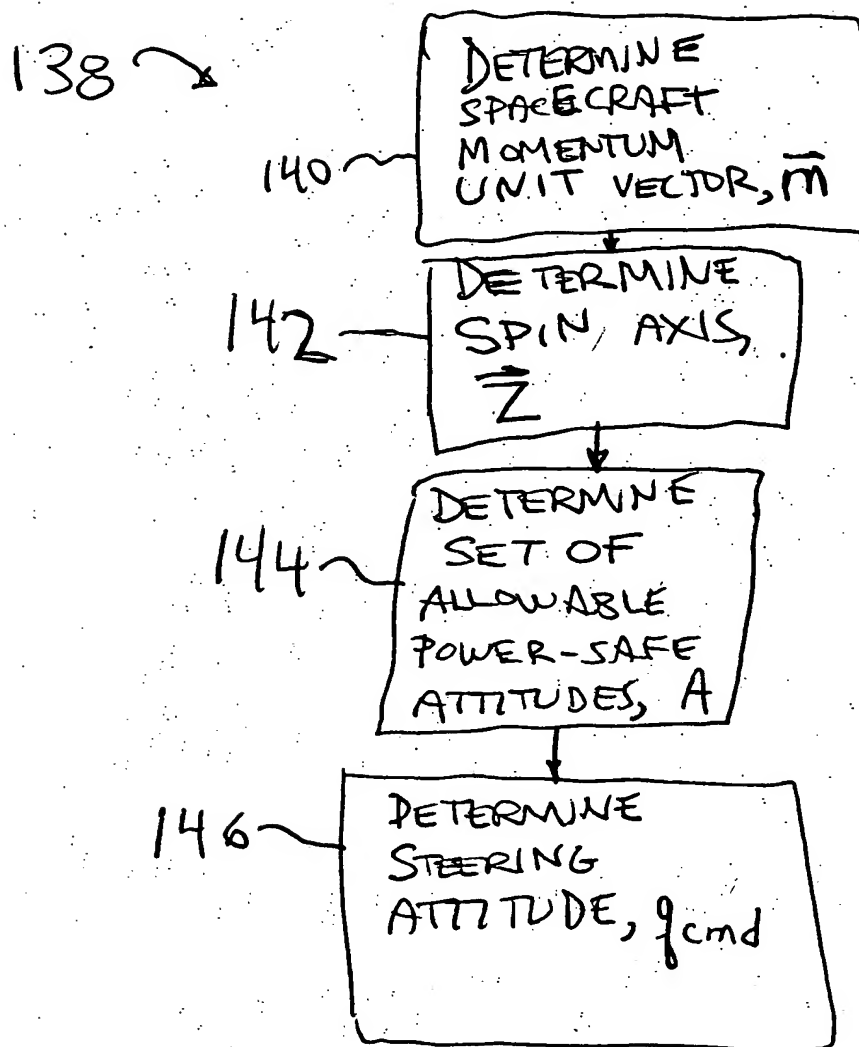 138
DETERMINE
SPACECRAFT
MOMENTUM
UNIT VECTOR, m⃗
140
DETERMINE
SPIN AXIS,
Z⃗
142
DETERMINE
SET OF
ALLOWABLE
POWER-SAFE
ATTITUDES, A
144
DETERMINE
STEERING
ATTITUDE, qcmd
146